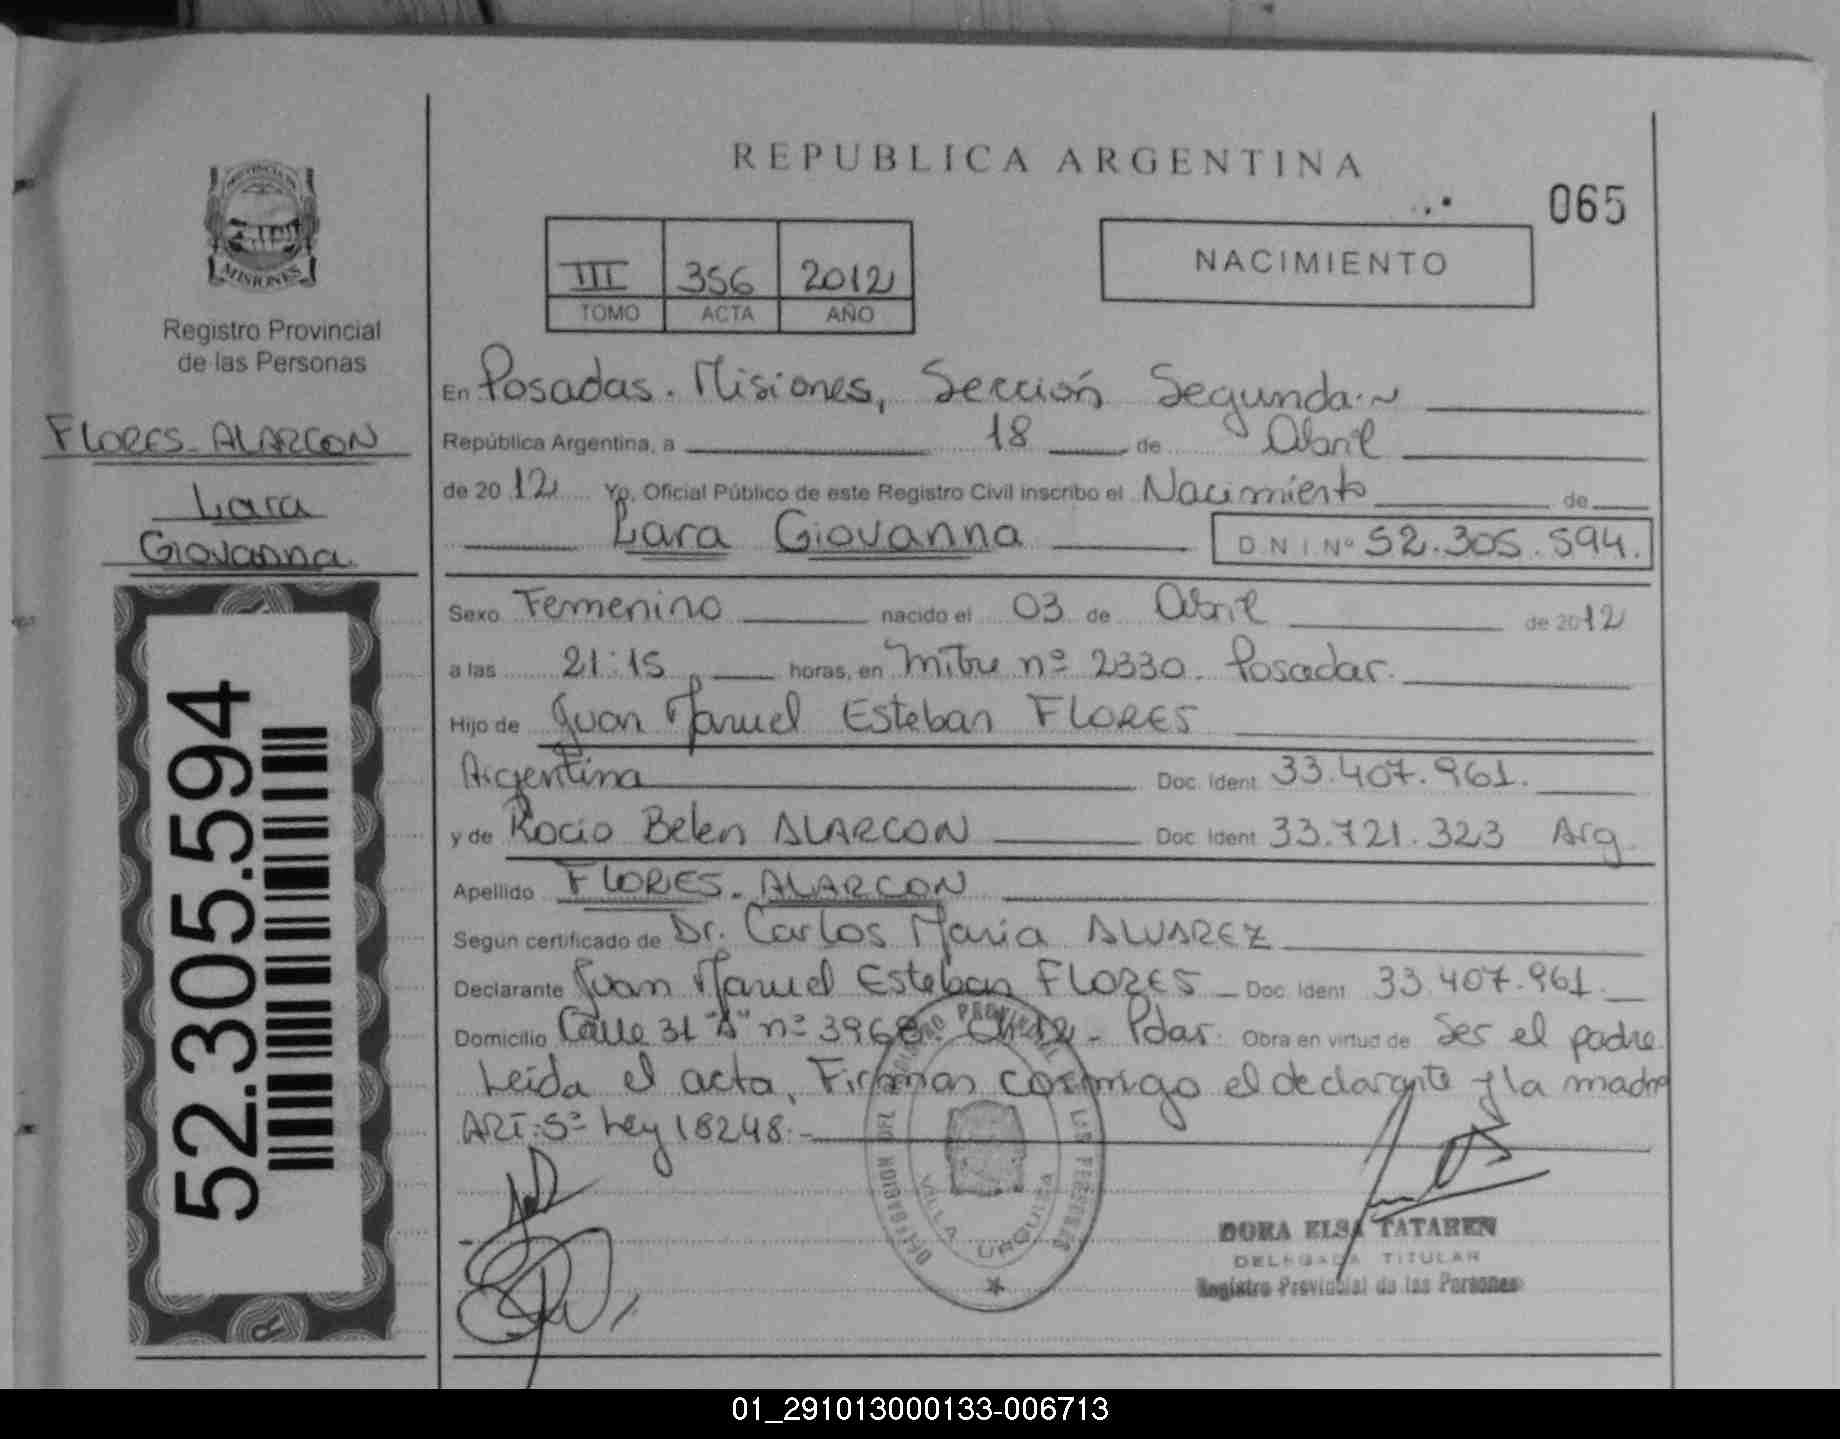 REPUBLICA ARGENTINA
065
NACIMIENTO
III 356 2012
TOMO ACTA AÑO
MISIONES
Registro Provincial
de las Personas
FLORES-ALARCON
Lara
Giovanna.
52.305.594
En Posadas. Misiones, Sección Segunda.~
República Argentina, a 18 de Abril
de 2012 Yo, Oficial Público de este Registro Civil inscribo el Nacimiento de
Lara Giovanna D N I Nº 52.305.594.
Sexo Femenino nacido el 03 de Abril de 2012
a las 21:15 horas, en Mitre nº 2330. Posadas.
Hijo de Juan Manuel Esteban FLORES
Argentina Doc. Ident. 33.407.961.
y de Rocio Belen ALARCON Doc. Ident. 33.721.323 Arg.
Apellido FLORES-ALARCON
Segun certificado de Dr. Carlos Maria ALVAREZ
Declarante Juan Manuel Esteban FLORES Doc. Ident. 33.407.961.
Domicilio Calle 31 "A" nº 3968. Ch 12 - Pdas. Obra en virtud de Ser el padre.
Leida el acta, Firman conmigo el declarante y la madre
ART: 5º Ley 18248.-
DELEGACION DEL REGISTRO PROVINCIAL DE LAS PERSONAS
VILLA URQUIZA
DORA ELSA TATAREN
DELEGADA TITULAR
Registro Provincial de las Personas
01_291013000133-006713